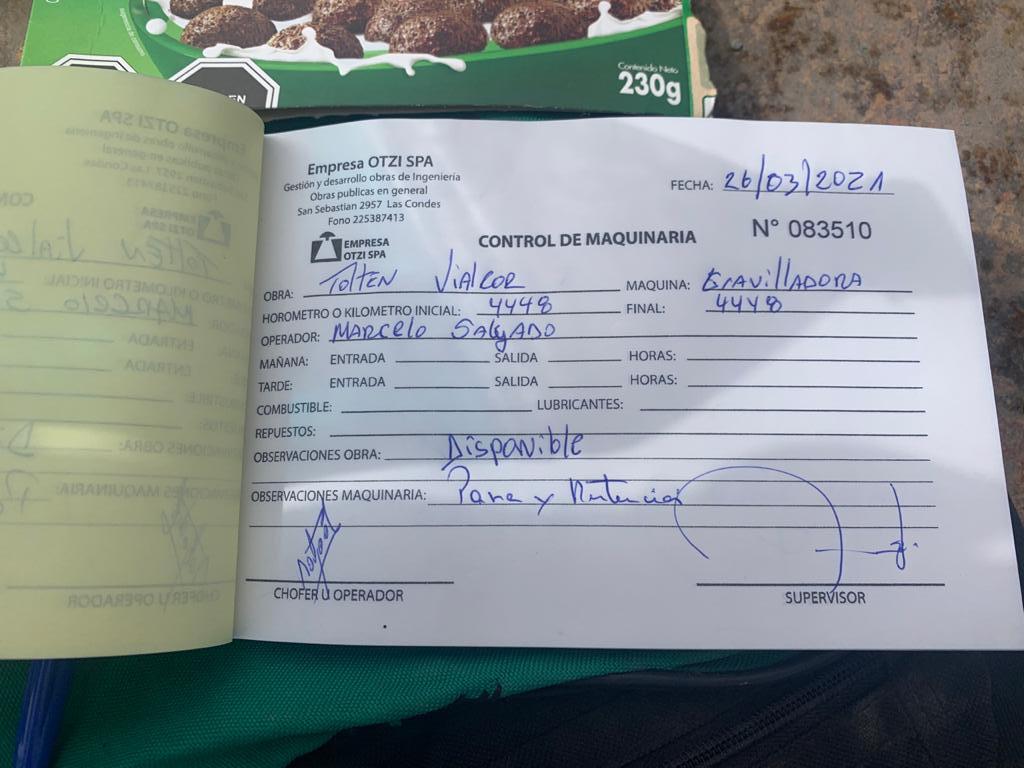 Contenido Neto
230g
EN
Empresa OTZI SPA
Gestión y desarrollo obras de Ingeniería
Obras publicas en general
San Sebastian 2957 Las Condes
Fono 225387413
FECHA: 26/03/2021
N° 083510
EMPRESA
OTZI SPA
CONTROL DE MAQUINARIA
OBRA: Tolten Vialcor MAQUINA: GravillADORA
HOROMETRO O KILOMETRO INICIAL: 4448 FINAL: 4448
OPERADOR: MARCELO SALgADO
MAÑANA: ENTRADA SALIDA HORAS:
TARDE: ENTRADA SALIDA HORAS:
COMBUSTIBLE: LUBRICANTES:
REPUESTOS:
OBSERVACIONES OBRA: Disponible
OBSERVACIONES MAQUINARIA: Pana y
CHOFER U OPERADOR
SUPERVISOR